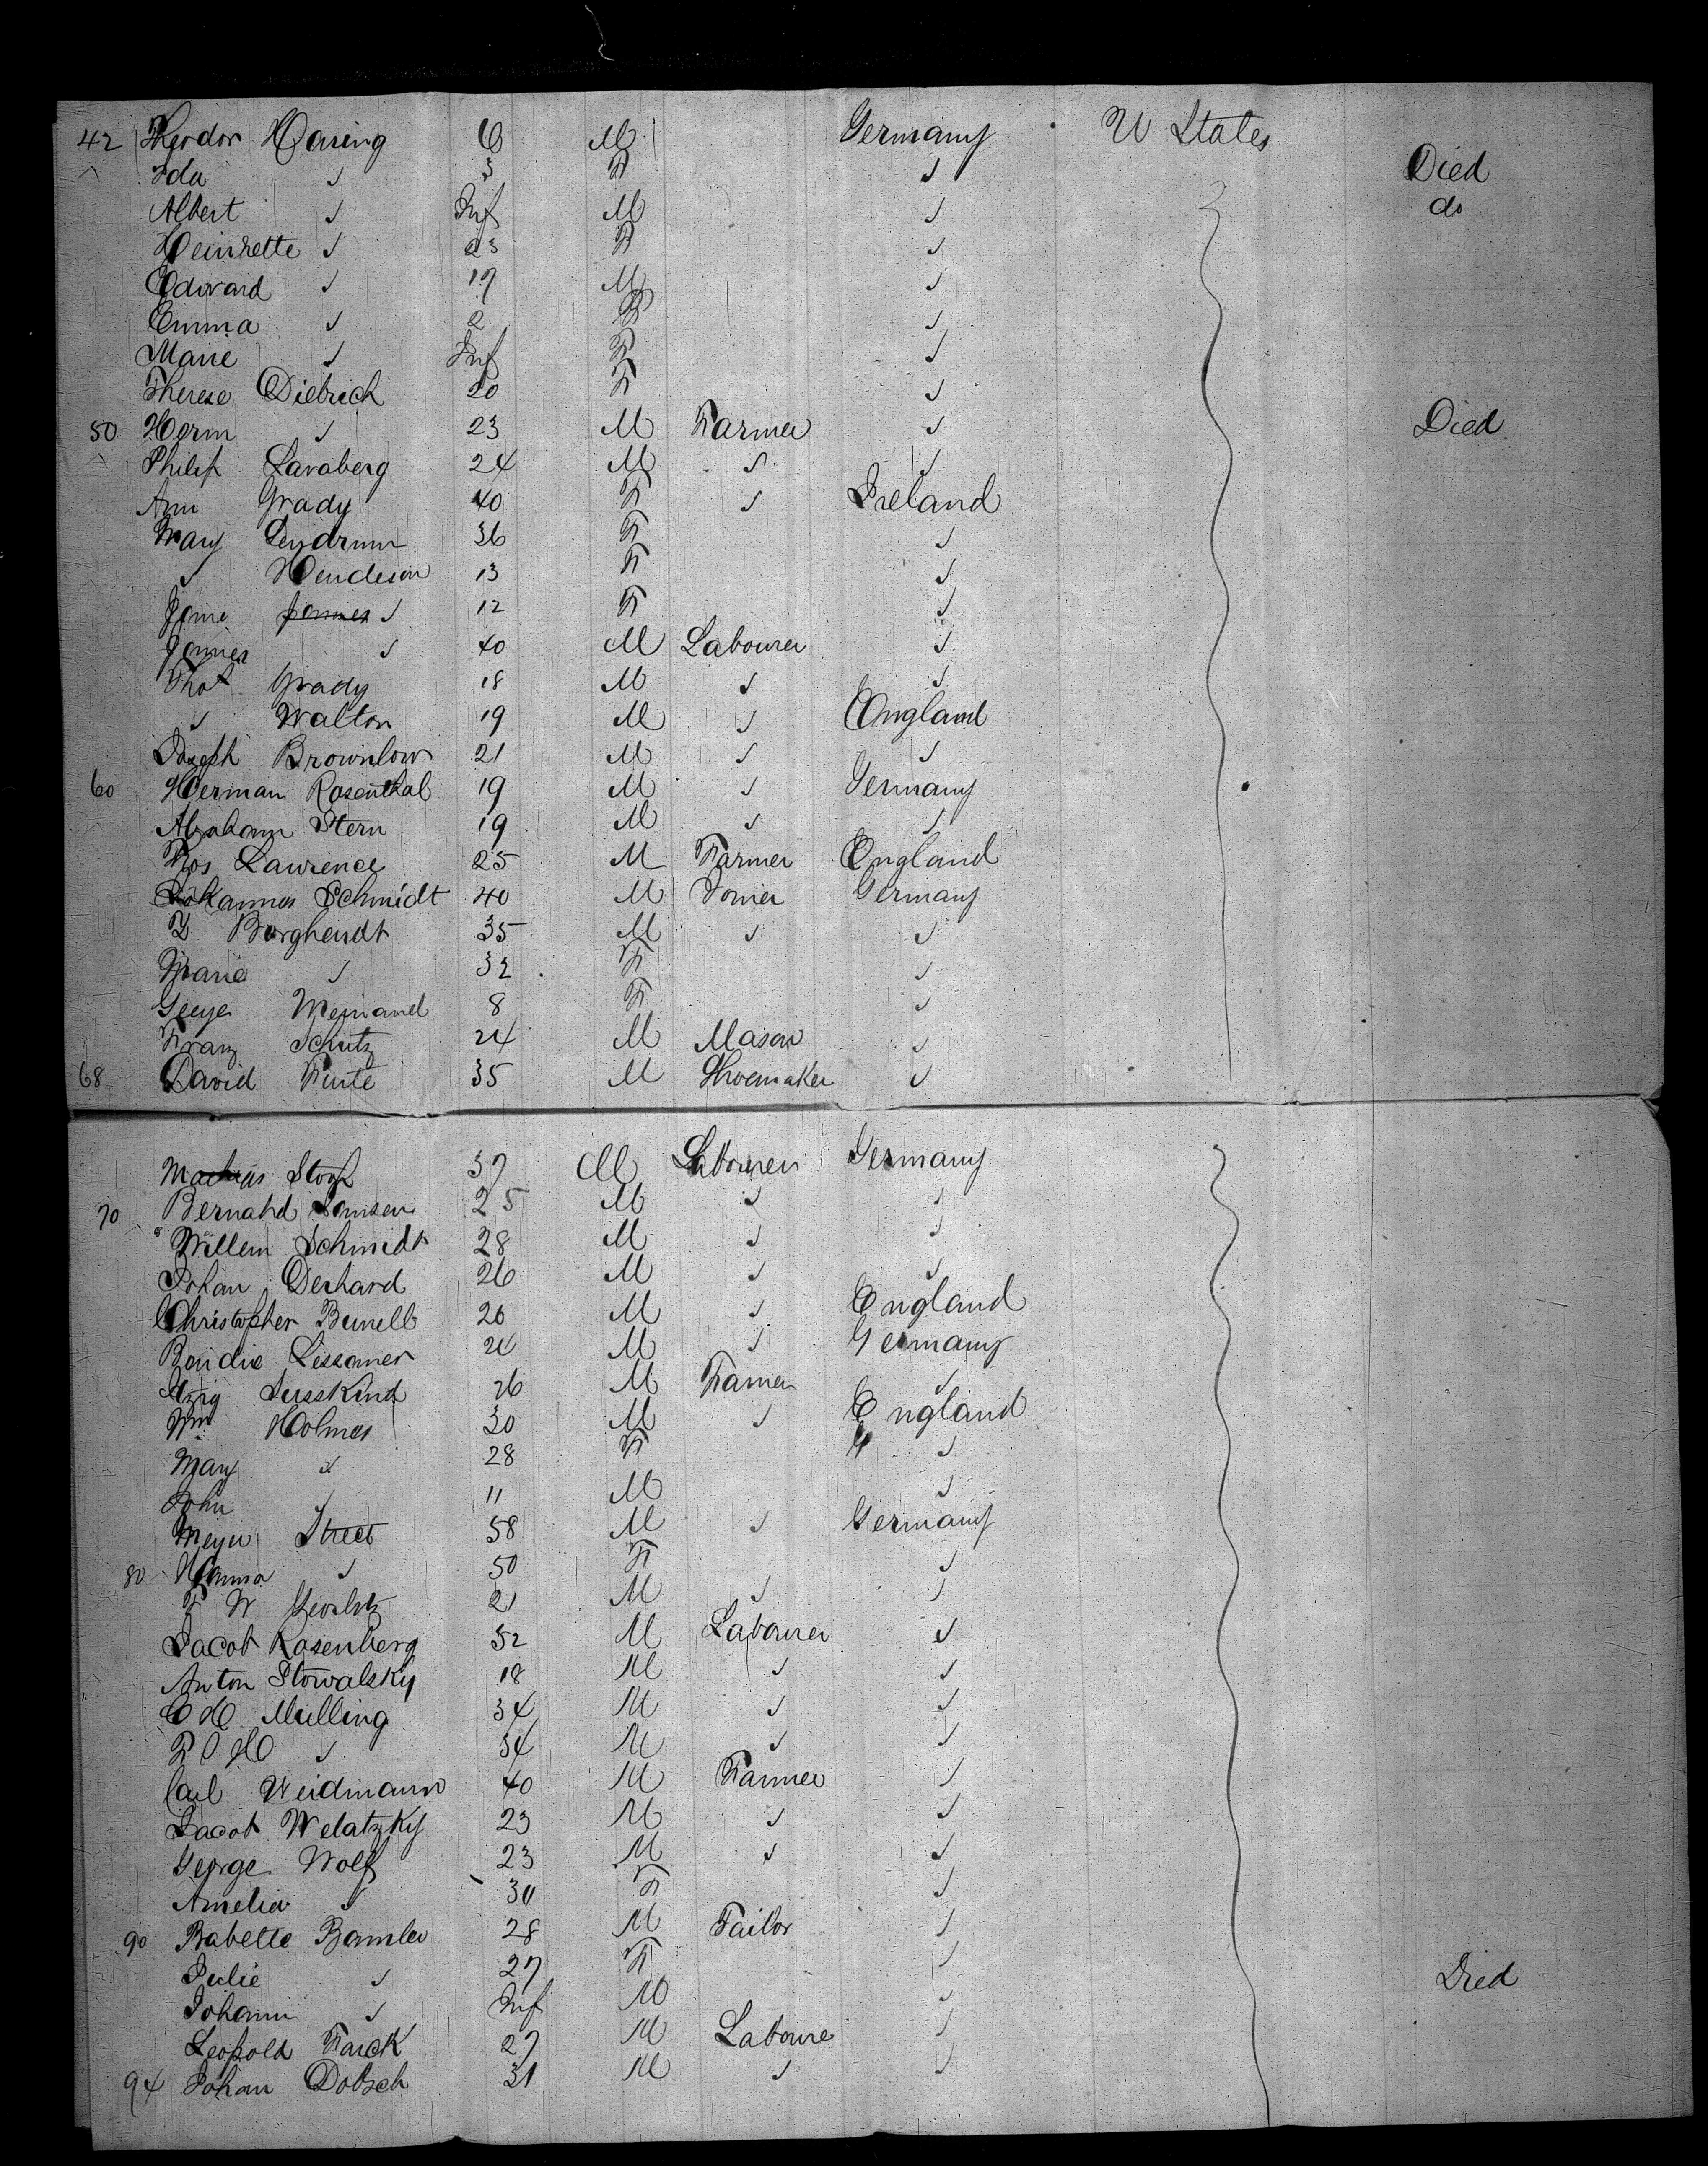 42 Theodor Hasing 6 M Germany U States
Ida ✓ 3 F ✓ Died
Albert ✓ Inf M ✓ do
Heinrette ✓ 23 F ✓
Edward ✓ 17 M ✓
Emma ✓ 2 F ✓
Marie ✓ Inf F ✓
Therese Diebrich 20 F ✓
50 Herm ✓ 23 M Farmer ✓ Died
Philip Lavaberg 24 M ✓ ✓
Ann Grady 40 F ✓ Ireland
Mary Lendrum 36 F ✓
✓ Hendeson 13 F ✓
Jane James ✓ 12 F ✓
James ✓ 40 M Labourer ✓
Thos Grady 18 M ✓ ✓
✓ Walton 19 M ✓ England
Joseph Brownlow 21 M ✓ ✓
60 Herman Rosenthal 19 M ✓ Germany
Abraham Stern 19 M ✓ ✓
Thos Lawrence 25 M Farmer England
Johannes Schmidt 40 M Joiner Germany
Borghendt 35 M ✓ ✓
Marie ✓ 32 F ✓
Meinand 8 F ✓
Franz Schutz 24 M Mason ✓
68 David 35 M Shoemaker ✓
Mathias 37 M Labourer Germany
70 Bernahd Jansen 25 M ✓ ✓
Willem Schmidt 28 M ✓ ✓
Johan Derhard 26 M ✓ ✓
Christopher Bunell 20 M ✓ England
Lessaner M ✓ Germany
Susskind 26 M Farmer ✓
Wm Holmes 30 M ✓ England
Mary ✓ 28 F ✓
John ✓ 11 M ✓
Meyer Street 58 M ✓ Germany
80 Hanna ✓ 50 F ✓
F W 21 M ✓ ✓
Jacob Rosenberg 52 M Labourer ✓
Anton Stowalsky 18 M ✓ ✓
C H Mulling 34 M ✓ ✓
✓ 34 M ✓ ✓
Carl Weidmann 40 M Farmer ✓
Jacob Welatzky 23 M ✓ ✓
George Wolf 23 M ✓ ✓
Amelia ✓ 30 F ✓
90 Babette Bamler 28 M Tailor ✓
Julie ✓ 27 F ✓ Died
Johann ✓ Inf M ✓
Leopold Farck 27 M Laboure ✓
94 Johan Dobsch 31 M ✓ ✓